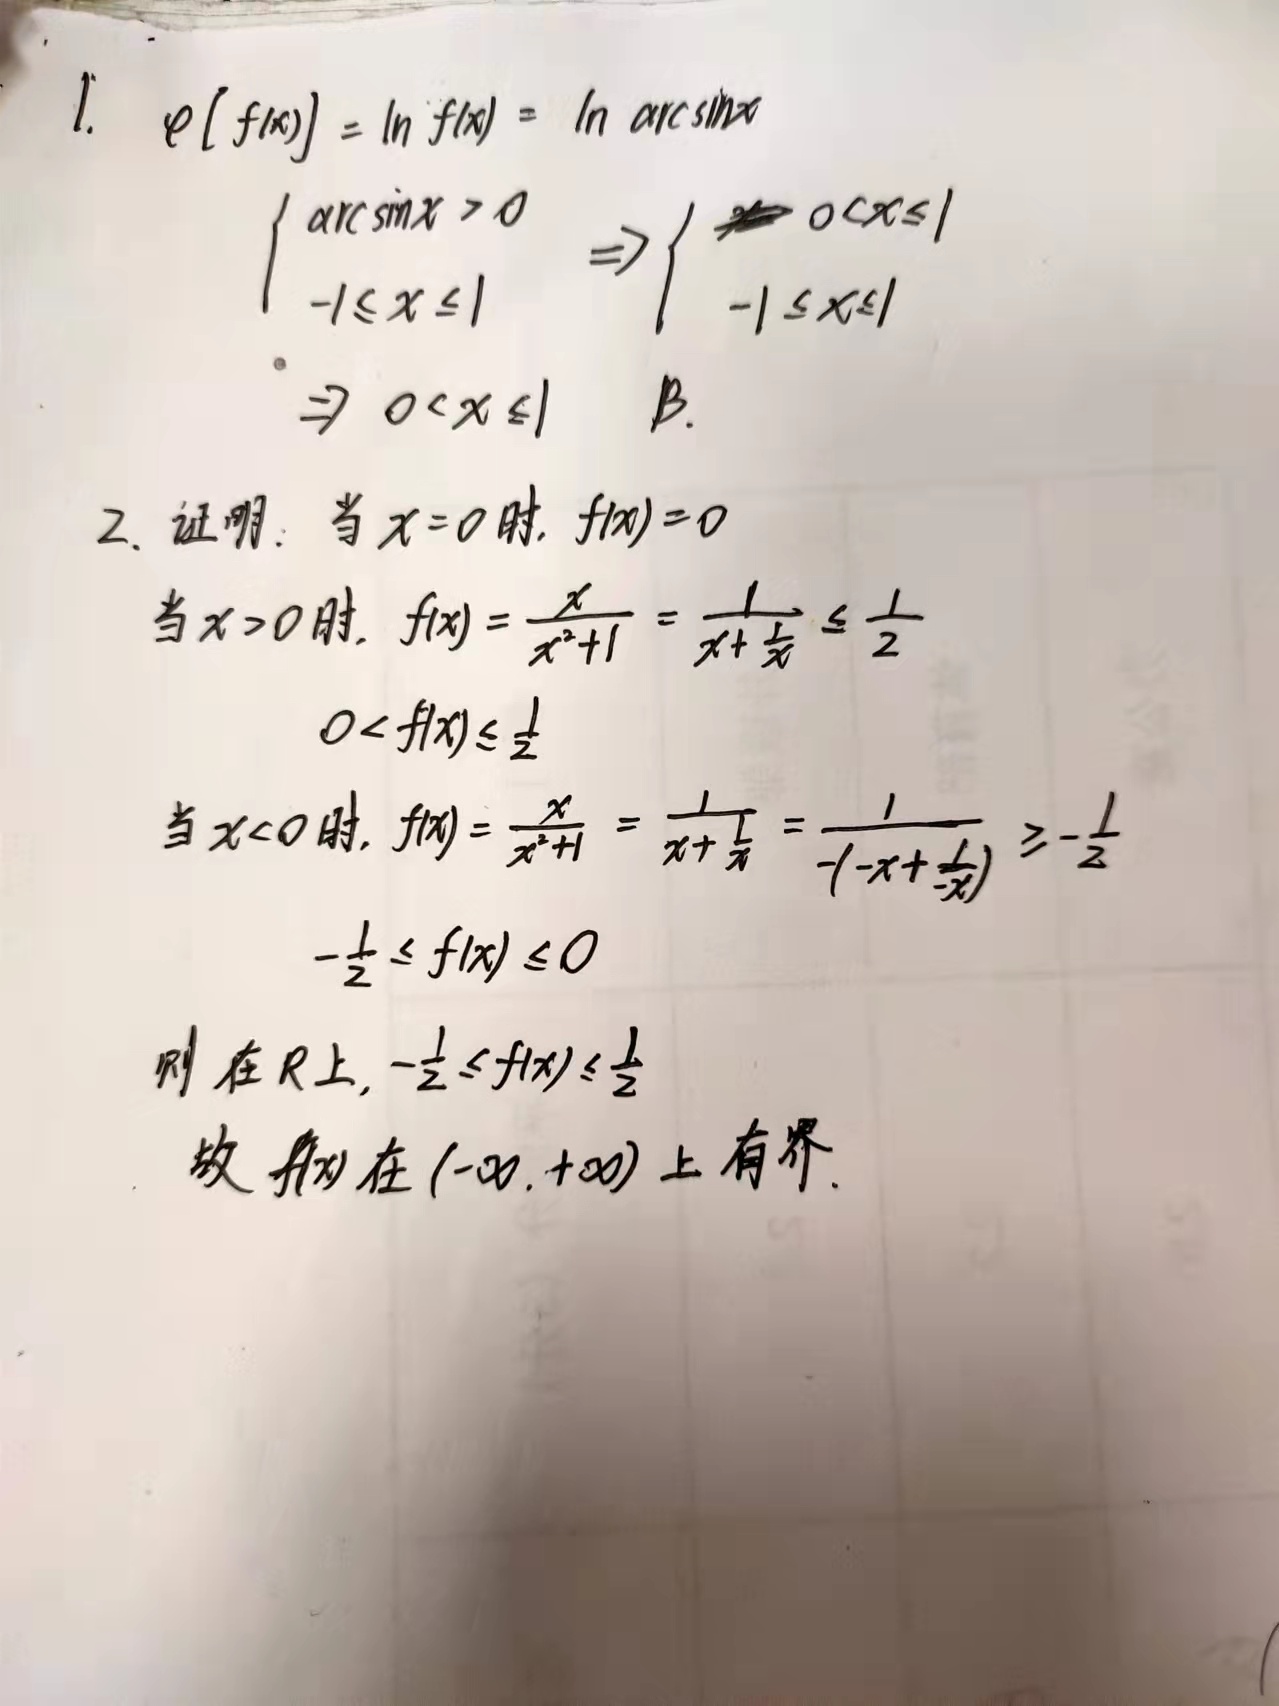 1. φ[f(x)] = ln f(x) = ln arcsinx
{ arcsinx > 0 ⇒ { 0<x≤1
-1≤x≤1 -1≤x≤1
⇒ 0<x≤1 B.
2. 证明: 当x=0时, f(x)=0
当x>0时, f(x) = x/(x²+1) = 1/(x+1/x) ≤ 1/2
0<f(x)≤1/2
当x<0时, f(x) = x/(x²+1) = 1/(x+1/x) = 1/(-(-x+1/(-x))) ≥ -1/2
-1/2 ≤ f(x) ≤ 0
则在R上, -1/2 ≤ f(x) ≤ 1/2
故 f(x) 在 (-∞, +∞) 上有界.